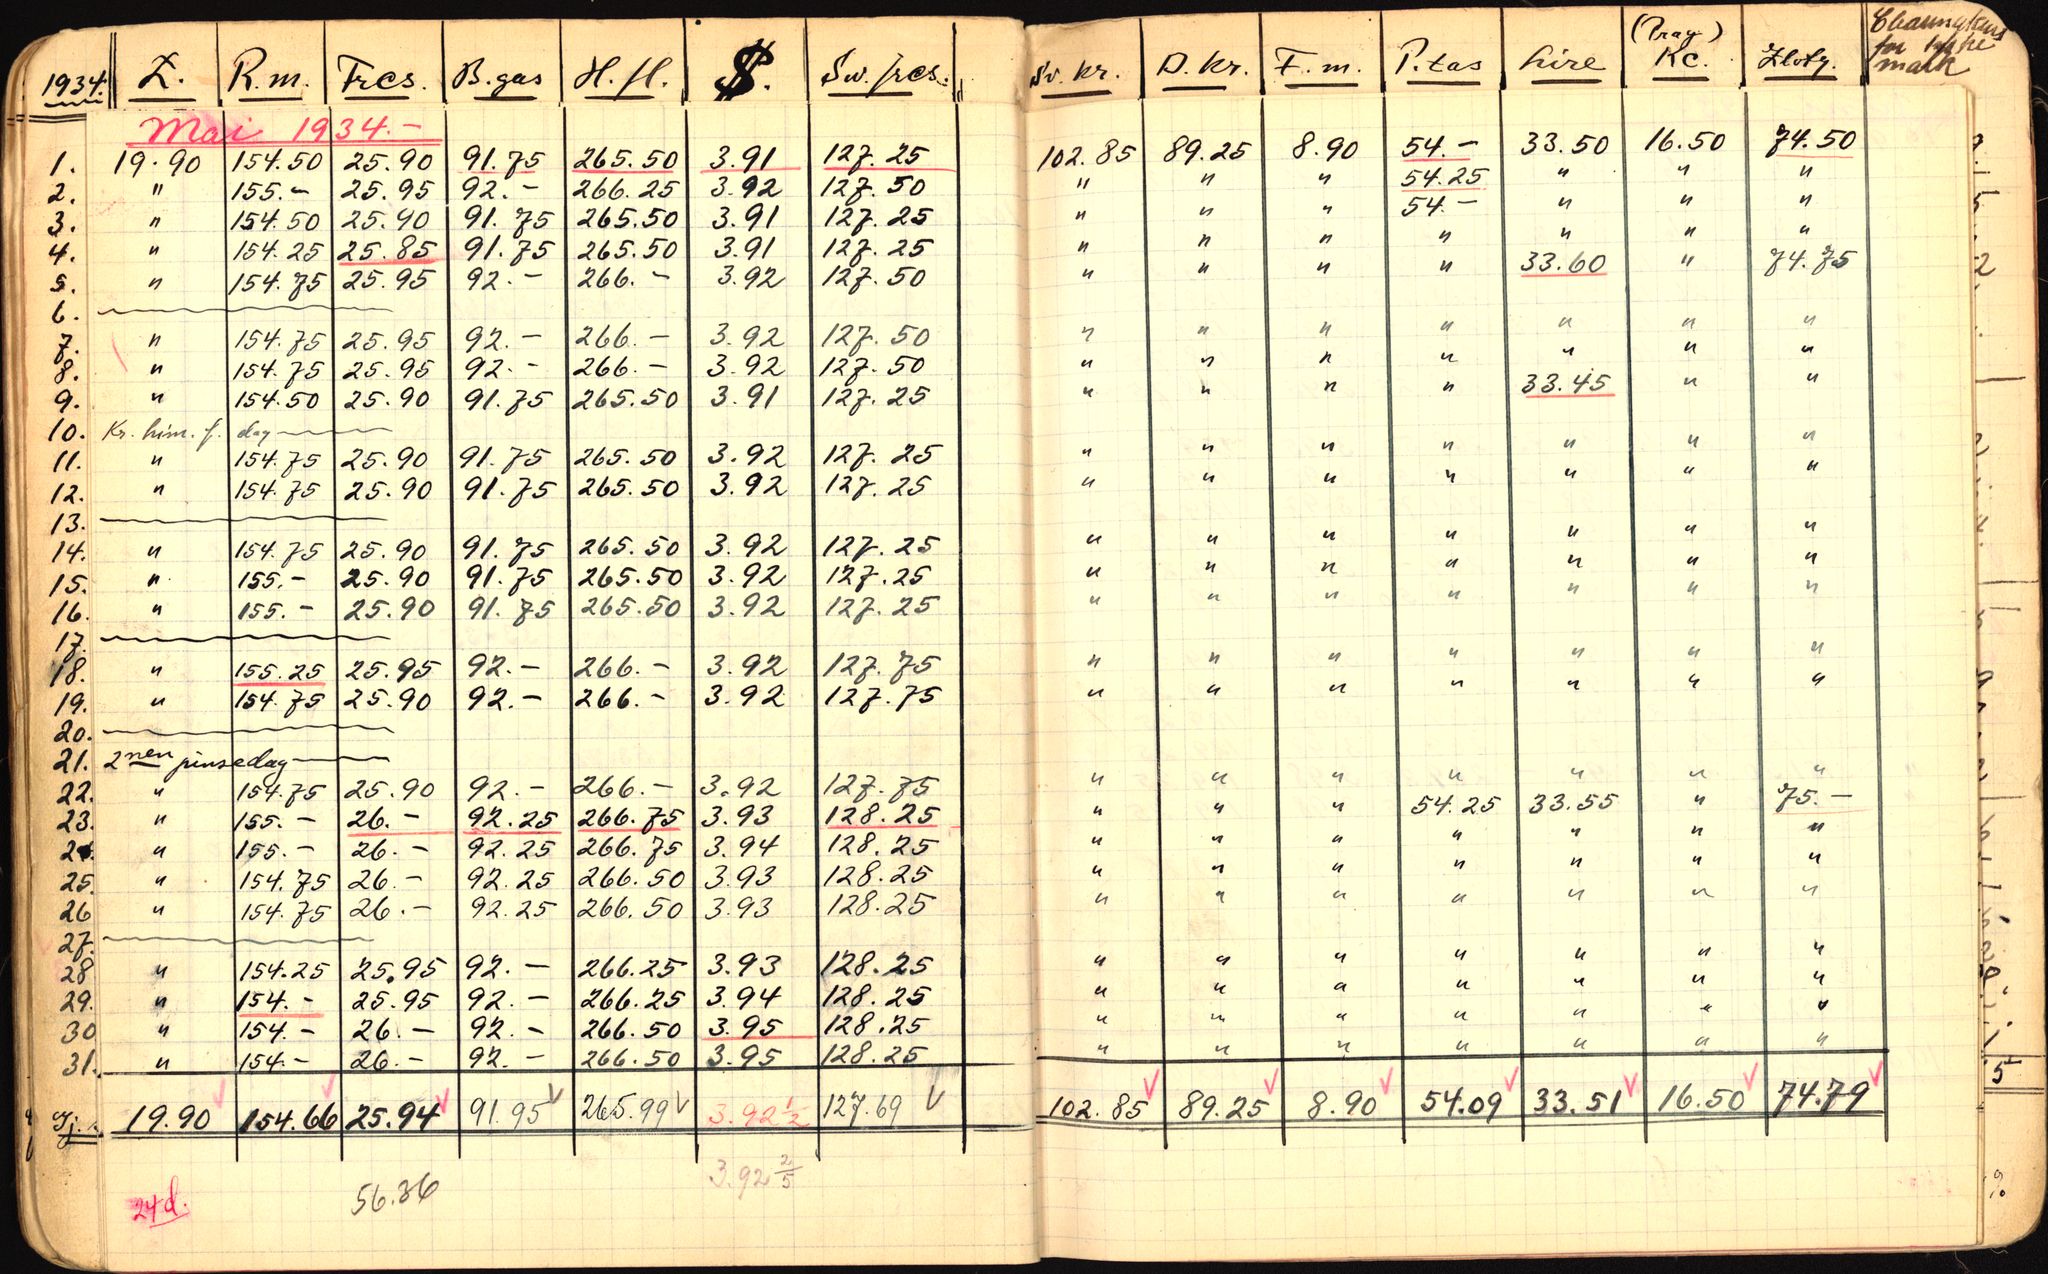 1934. £. R.m. Frcs. B.gas H.fl. $. Sw. frcs. Sv. kr. D. kr. F. m. P.tas Lire (Prag) Kc. Zloty. for mark
Mai 1934.-
1. 19.90 154.50 25.90 91.75 265.50 3.91 127.25 102.85 89.25 8.90 54.- 33.50 16.50 74.50
2. " 155.- 25.95 92.- 266.25 3.92 127.50 " " " 54.25 " " "
3. " 154.50 25.90 91.75 265.50 3.91 127.25 " " " 54.- " " "
4. " 154.25 25.85 91.75 265.50 3.91 127.25 " " " " " " "
5. " 154.75 25.95 92.- 266.- 3.92 127.50 " " " " 33.60 " 74.75
6.
7. " 154.75 25.95 92.- 266.- 3.92 127.50 " " " " " " "
8. " 154.75 25.95 92.- 266.- 3.92 127.50 " " " " " " "
9. " 154.50 25.90 91.75 265.50 3.91 127.25 " " " " 33.45 " "
10. Kr. him. f. dag
11. " 154.75 25.90 91.75 265.50 3.92 127.25 " " " " " " "
12. " 154.75 25.90 91.75 265.50 3.92 127.25 " " " " " " "
13.
14. " 154.75 25.90 91.75 265.50 3.92 127.25 " " " " " " "
15. " 155.- 25.90 91.75 265.50 3.92 127.25 " " " " " " "
16. " 155.- 25.90 91.75 265.50 3.92 127.25 " " " " " " "
17.
18. " 155.25 25.95 92.- 266.- 3.92 127.75 " " " " " " "
19. " 154.75 25.90 92.- 266.- 3.92 127.75 " " " " " " "
20.
21. 2nen pinsedag
22. " 154.75 25.90 92.- 266.- 3.92 127.75 " " " " " " "
23. " 155.- 26.- 92.25 266.75 3.93 128.25 " " " 54.25 33.55 " 75.-
24. " 155.- 26.- 92.25 266.75 3.94 128.25 " " " " " " "
25. " 154.75 26.- 92.25 266.50 3.93 128.25 " " " " " " "
26 " 154.75 26.- 92.25 266.50 3.93 128.25 " " " " " " "
27.
28 " 154.25 25.95 92.- 266.25 3.93 128.25 " " " " " " "
29. " 154.- 25.95 92.- 266.25 3.94 128.25 " " " " " " "
30 " 154.- 26.- 92.- 266.50 3.95 128.25 " " " " " " "
31. " 154.- 26.- 92.- 266.50 3.95 128.25 " " " " " " "
Gj. 19.90 154.66 25.94 91.95 265.99 3.92 1/2 127.69 102.85 89.25 8.90 54.09 33.51 16.50 74.79
24d. 56.36 3.92 2/5